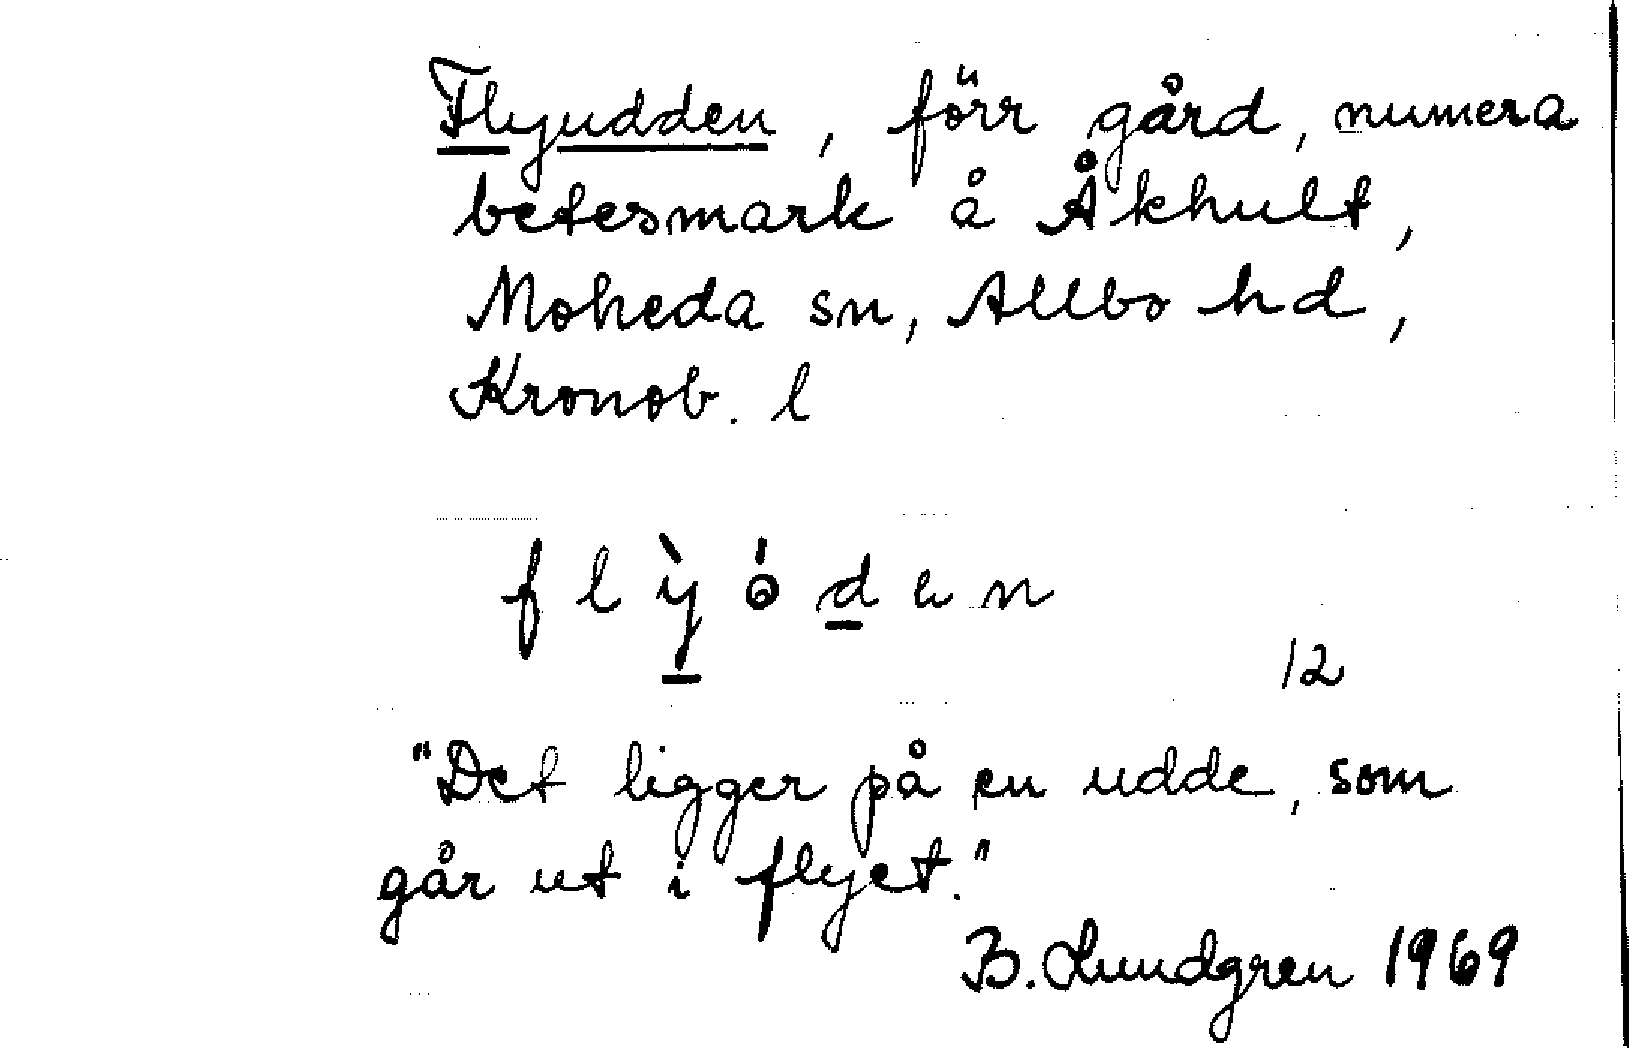 Flyudden, förr gård, numera
betesmark å Åkhult,
Moheda sn, Allbo hd,
Kronob. l
12
"Det ligger på en udde, som
går ut i flyet."
B. Lundgren 1969